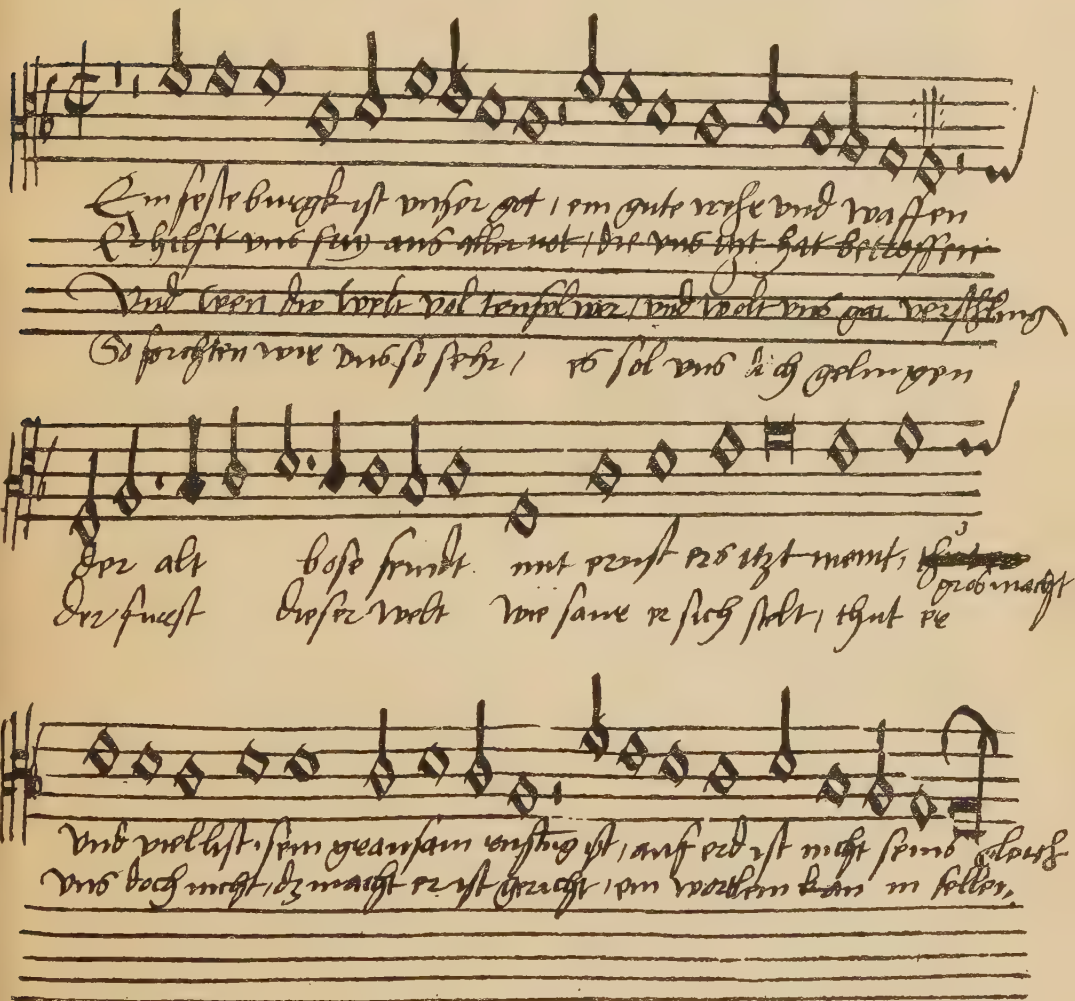 Ein feste burgk ist vnser got / ein gute wehr vnd waffen
Er hilft vns frey aus aller not / die vns itzt hat betroffen
Vnd wen die welt vol teufel wer / vnd wolt vns gar verschling
So forchten wir vns so sehr / es sol vns doch gelingen
der alt bose feindt mit ernst ers itzt meint,
gros macht
der furst dieser welt wie saur er sich stelt / thut er
vnd viel list / sein grausam rustug ist / auf erd ist nicht seins gleich
vns doch nicht / dz macht er ist gericht / ein wortlein kan in fellen